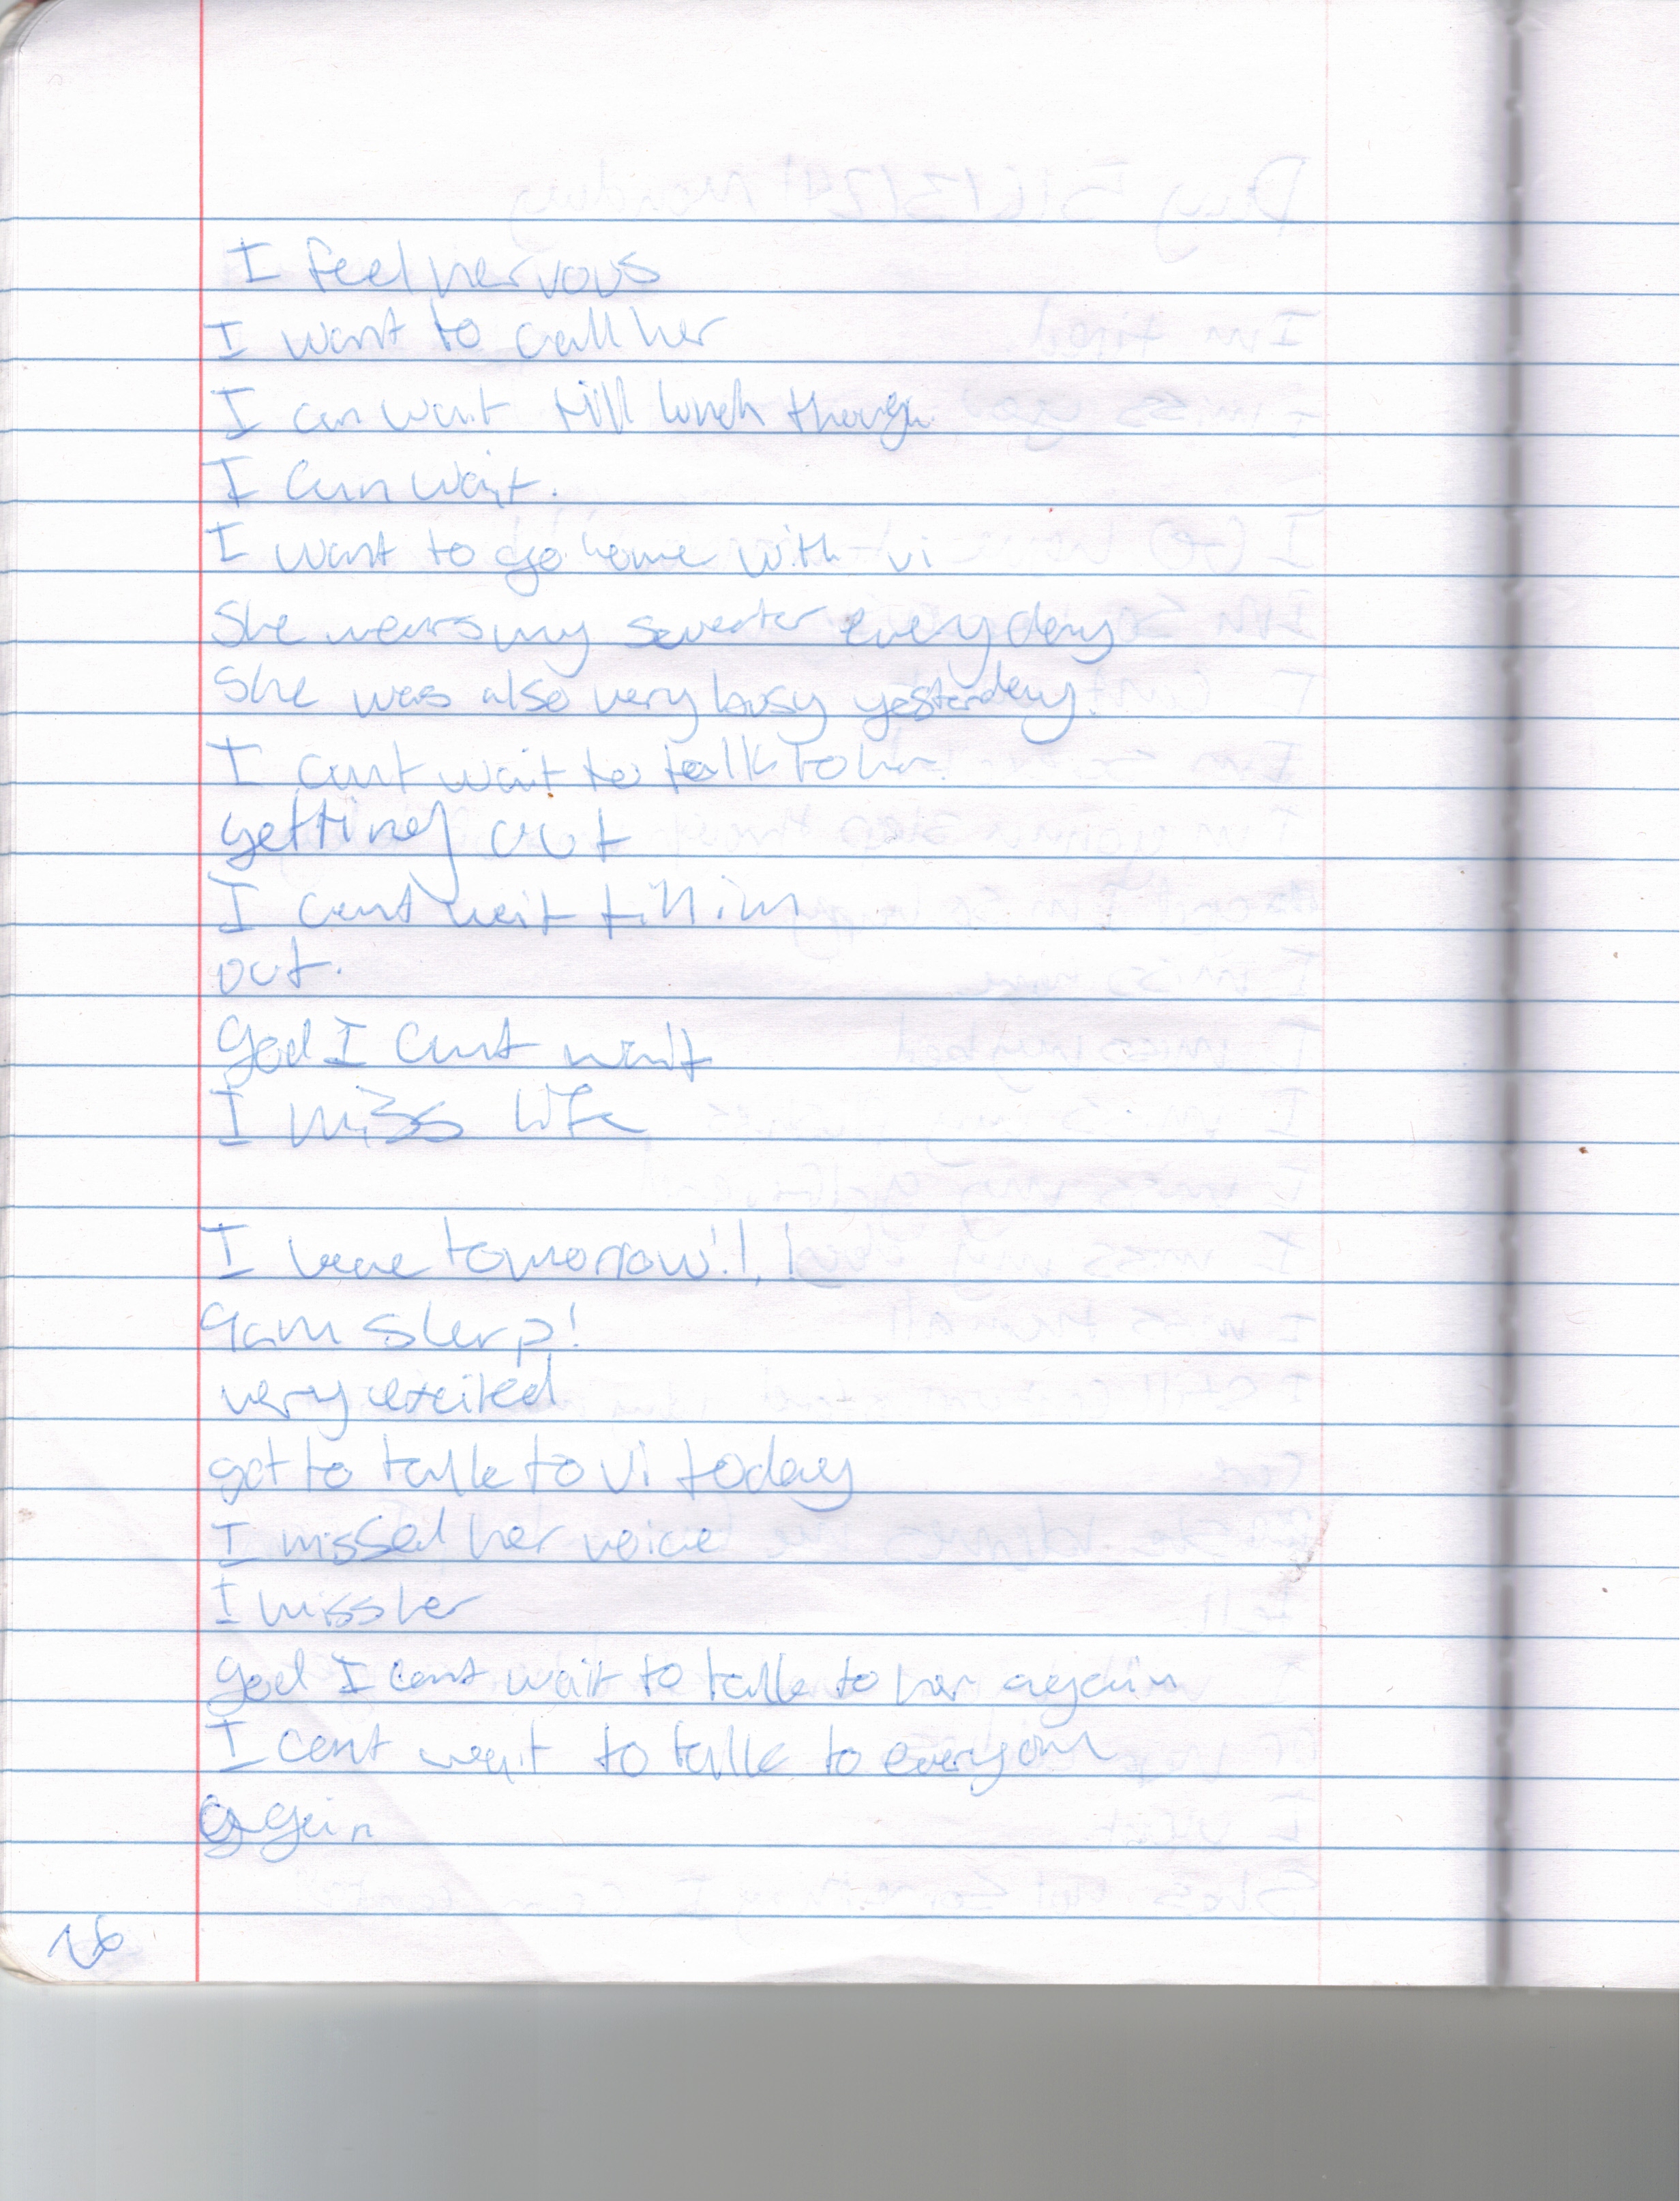 I feel nervous
I want to call her
I can wait till lunch though
I can wait.
I want to go home with vi
She wears my sweater everyday
She was also very busy yesterday.
I cant wait to talk to her
getting out
I cant wait till im
out.
god I cant wait
I miss life
I leave tomorrow!!!
9am slerp!
very excited
got to talk to vi today
I missed her voice
I miss her
god I cant wait to talk to her again
I cant wait to talk to everyone
again
26